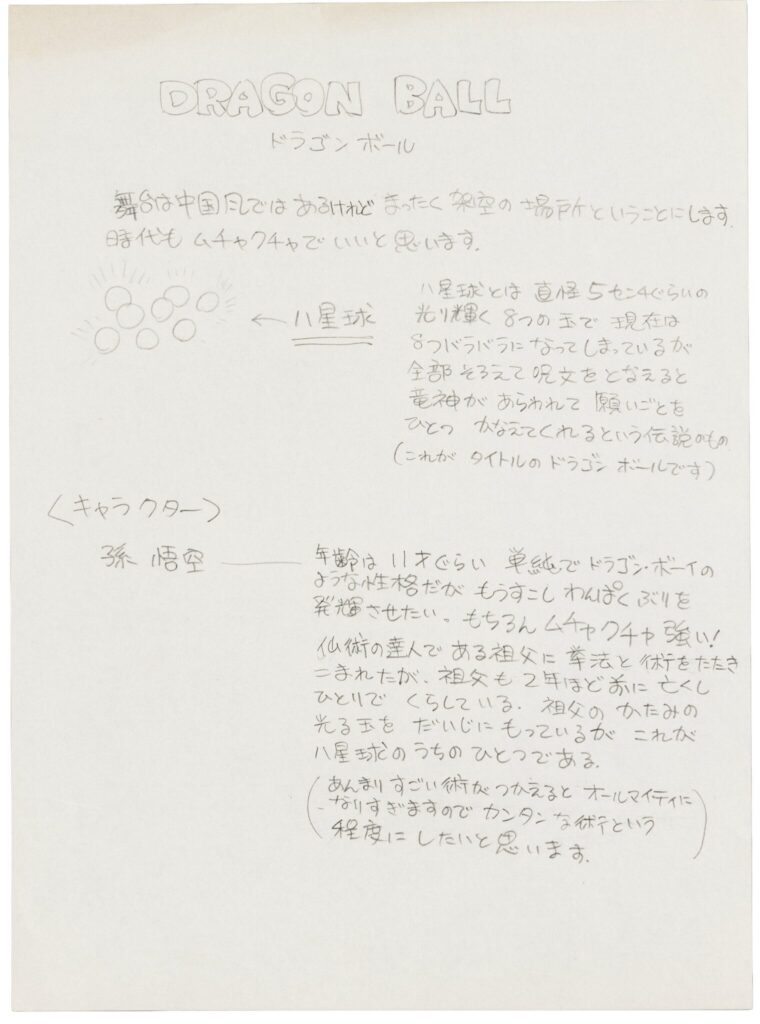 DRAGON BALL
ドラゴン ボール
舞台は中国風ではあるけれど まったく架空の場所ということにします.
時代も ムチャクチャで いいと思います.
← 八星球
八星球とは 直怪5センチぐらいの
光り輝く 8つの玉で 現在は
8つバラバラに なってしまっているが
全部 そろえて 呪文を となえると
竜神が あらわれて 願いごとを
ひとつ かなえてくれるという伝説のもの
(これが タイトルの ドラゴン ボールです)
〈キャラクター〉
孫 悟空 ——
年齢は 11才ぐらい 単純で ドラゴン・ボーイの
ような性格だが もうすこし わんぱく ぶりを
発輝させたい。もちろん ムチャクチャ 強い!
仙術の達人で ある祖父に 拳法と 術をたたき
こまれたが、祖父も 2年ほど前に 亡くし
ひとりで くらしている. 祖父の かたみの
光る玉を だいじに もっているが これが
八星球のうちの ひとつである.
(あんまり すごい術が つかえると オールマイティに
なりすぎますので カンタンな術という
程度に したいと 思います.)